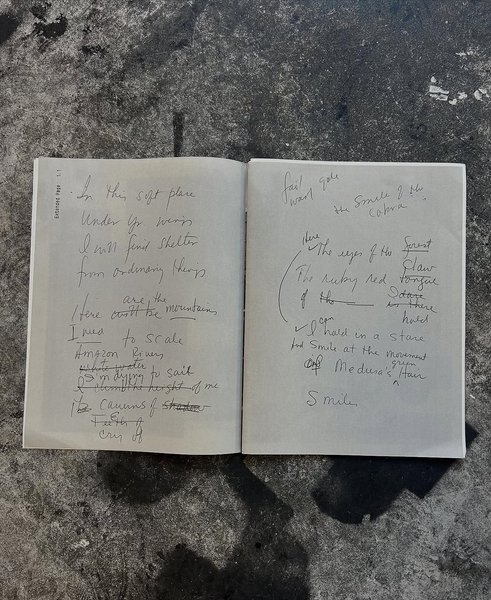 EXTENDED PAGE 1.1
In this soft place
Under yr wings
I will find shelter
from ordinary things
are the
Here will be mountains
I need to scale
Amazon Rivers
White water
I'm dying to sail
the height of me
The caverns of shadow
Teeth of
cry of
sail gale
want
the smile of the
cobra
Here
The eyes of the forest
Claw
The ruby red tongue
of the I dare
is there
hold
can
I hold in a stare
And Smile at the movement
green
of Medusa's Hair
Smile